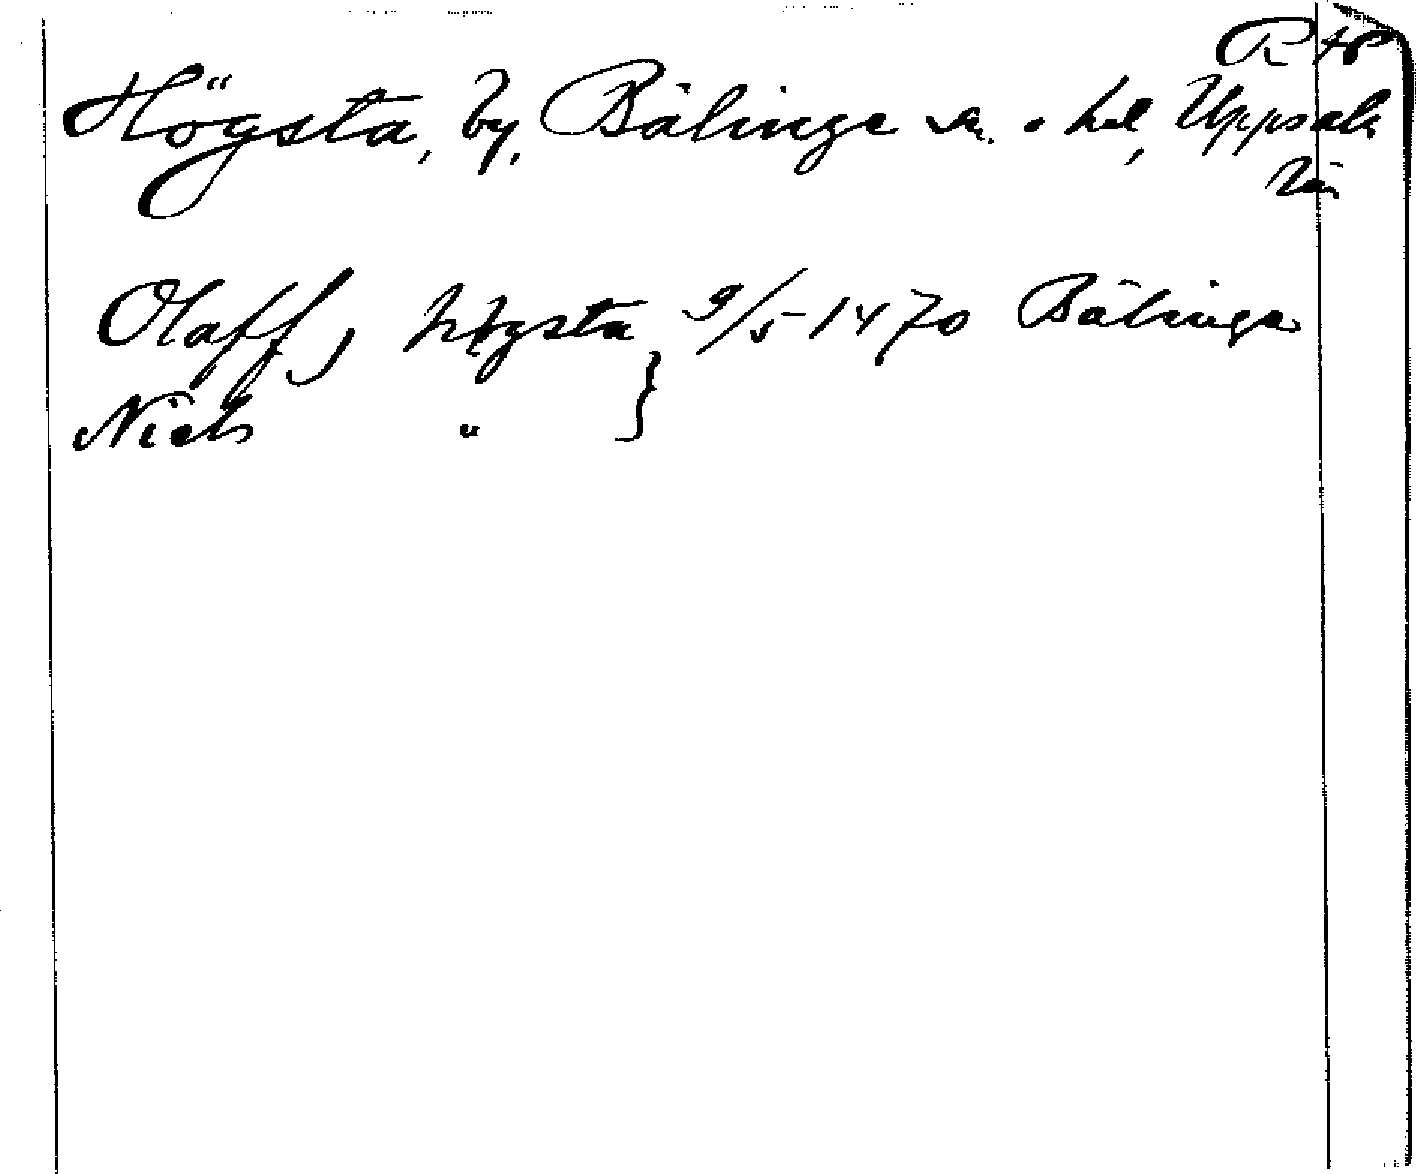 R 48
Högsta, by, Bälinge sn. o. hd, Uppsala
län
Olaff j Høgsta 9/5 1470 Bälinga
Niels " }